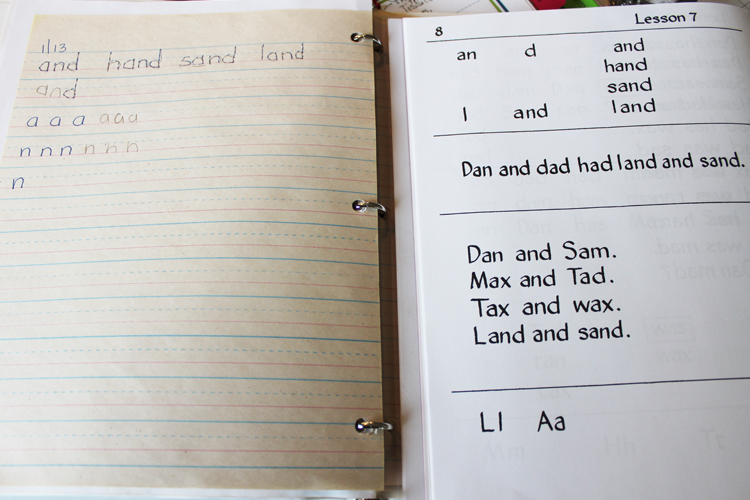 1/13
and hand sand land
and
a a a a a a
n n n n n n
n
8 Lesson 7
an d and
hand
sand
l and land
Dan and dad had land and sand.
Dan and Sam.
Max and Tad.
Tax and wax.
Land and sand.
Ll Aa